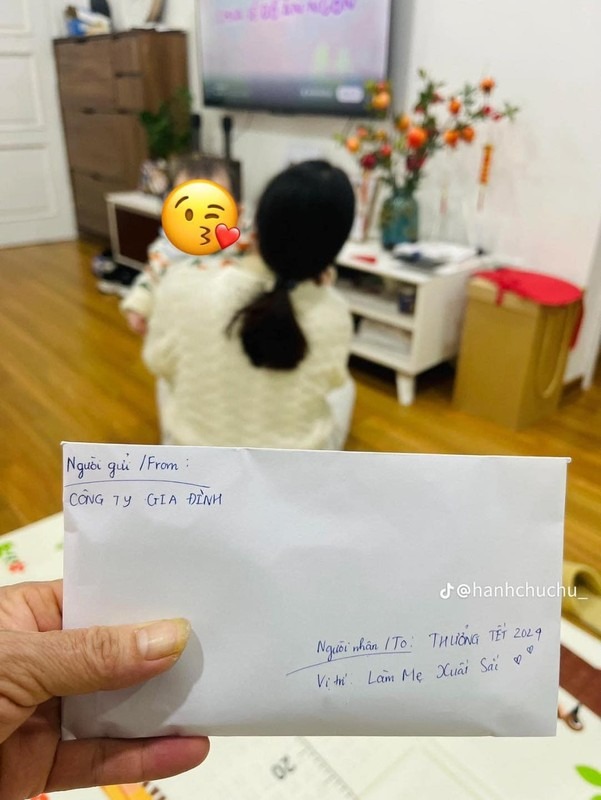 Người gửi /From :
CÔNG TY GIA ĐÌNH
@hanhchuchu_
Người nhận /To: THƯỞNG TẾT 2024
Vị trí: Làm Mẹ Xuất Sắc
20